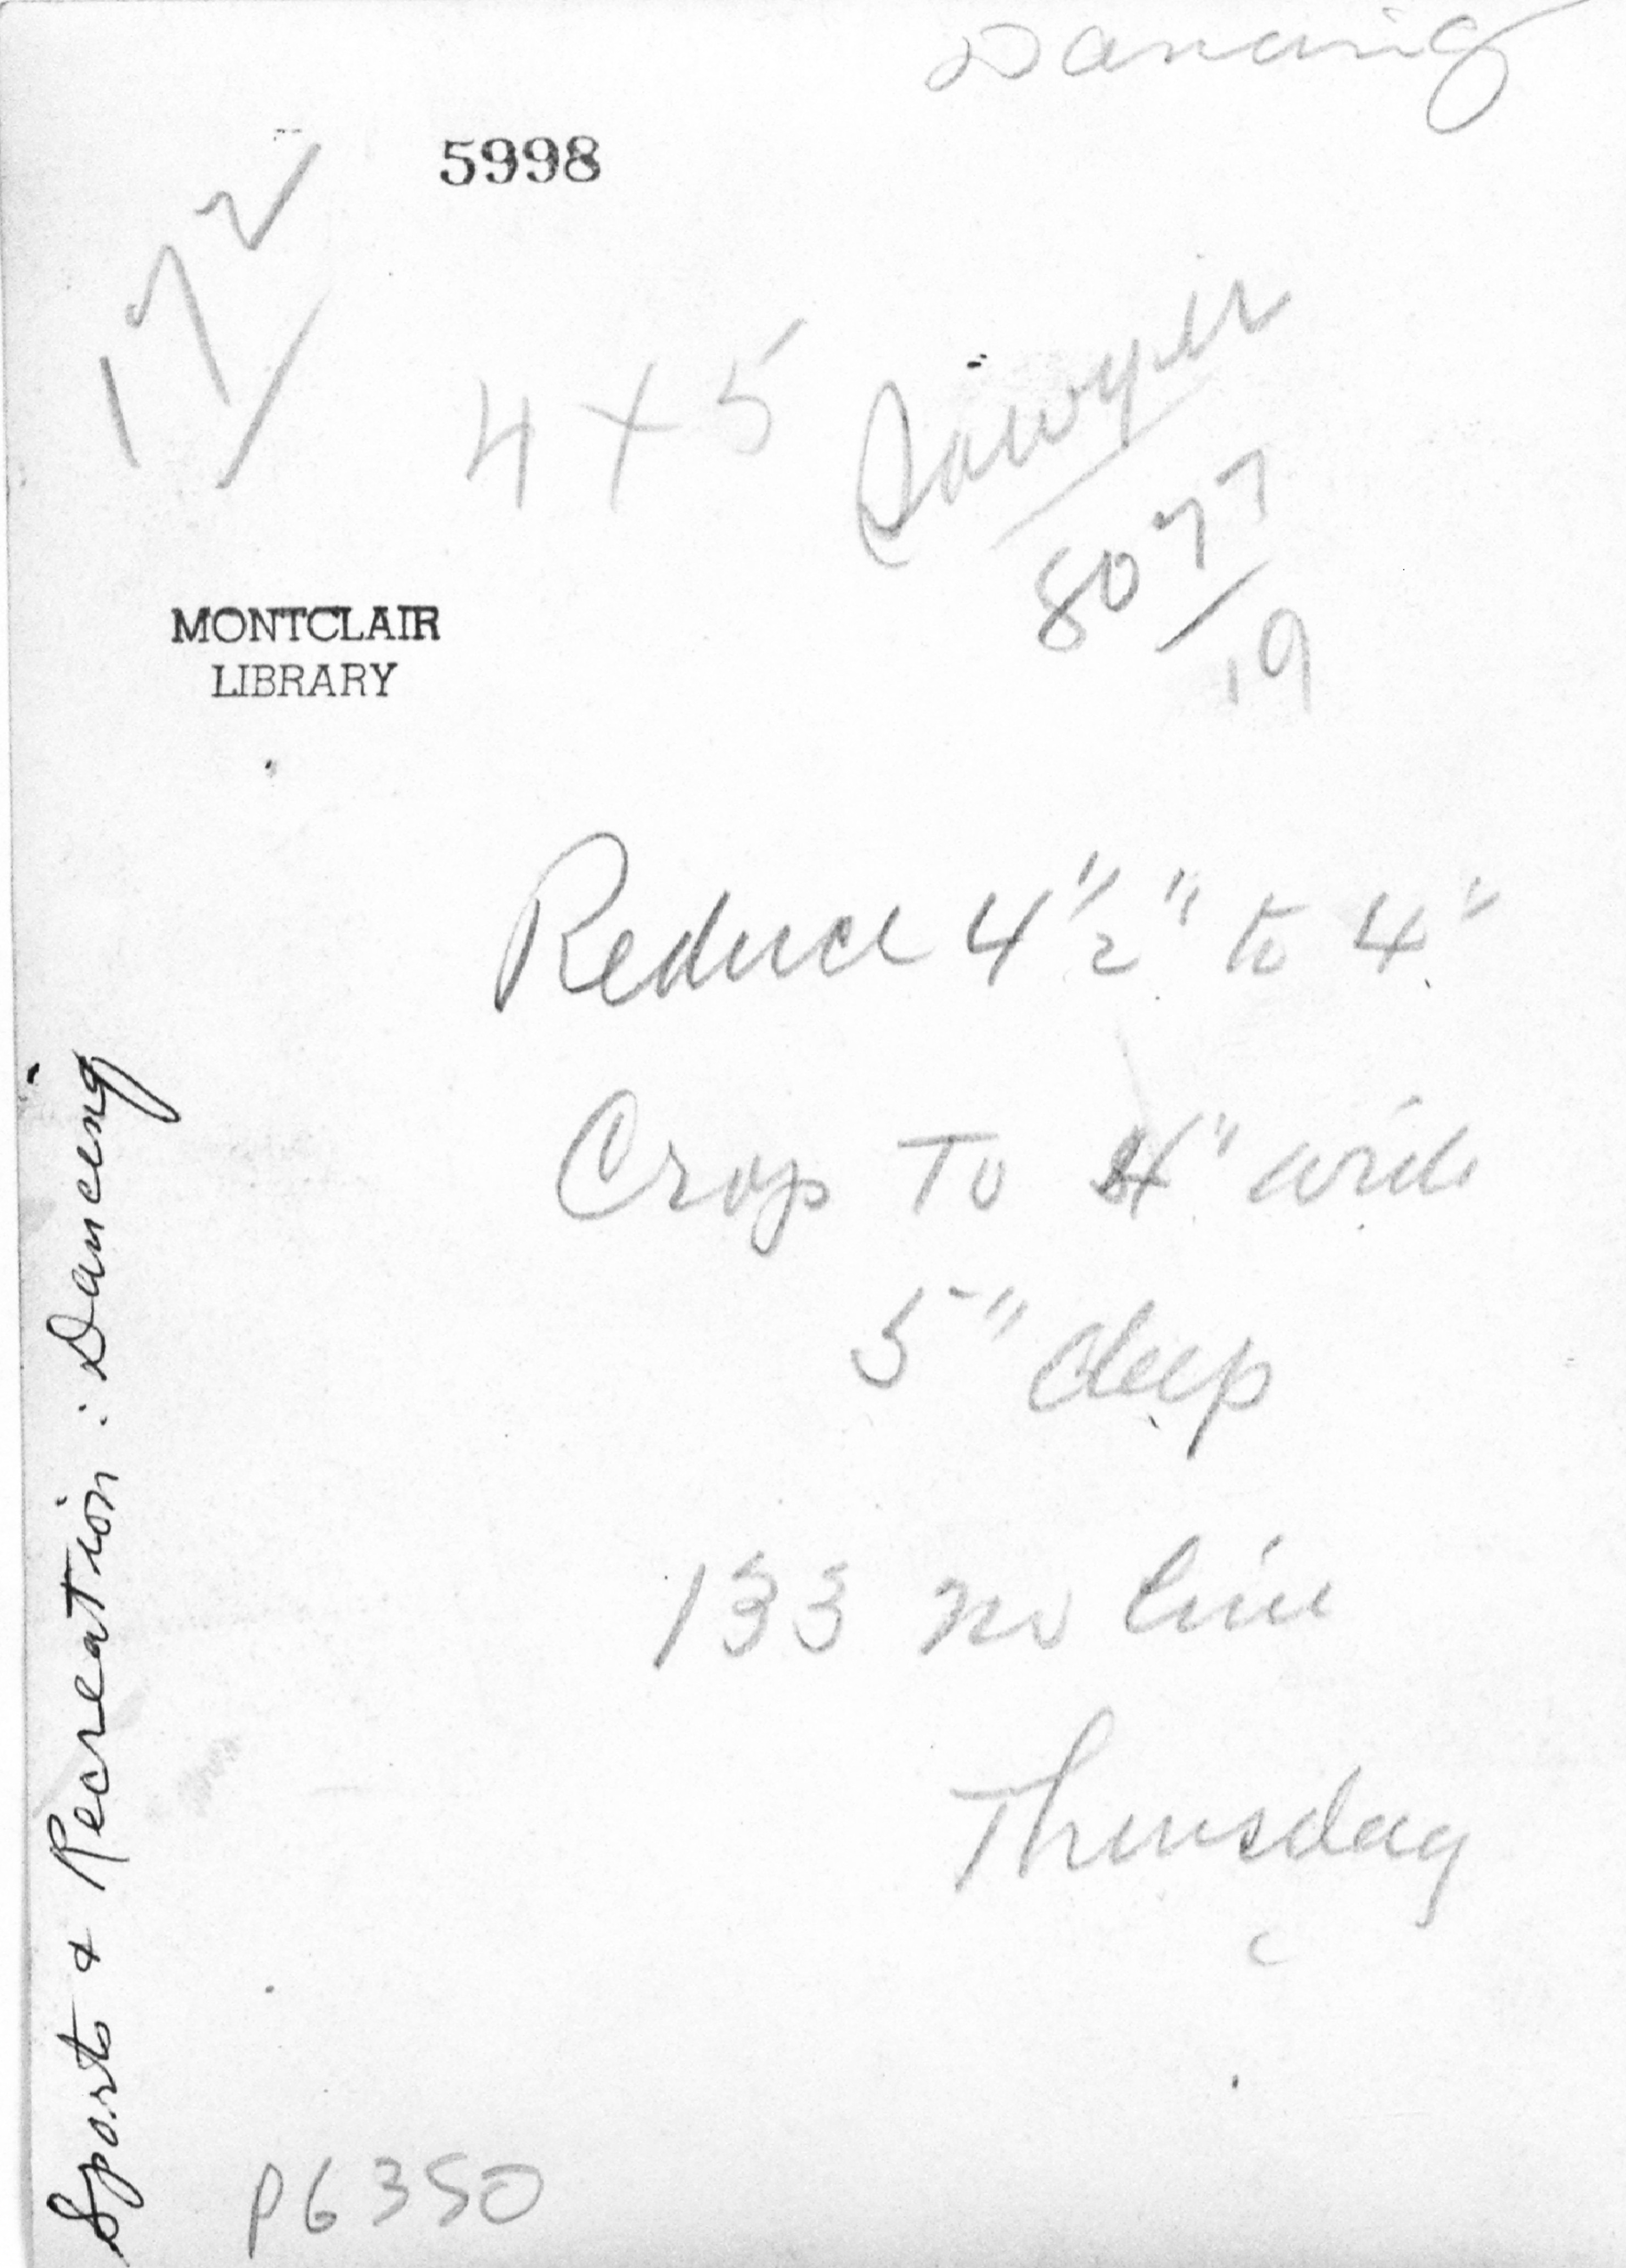 Dancing
5998
172
4 x 5
Sawyer
8077/19
MONTCLAIR
LIBRARY
Reduce 4 1/2" to 4"
Crop To 4" wide
5" deep
133 no line
Thursday
Sports & Recreation: Dancing
P6350